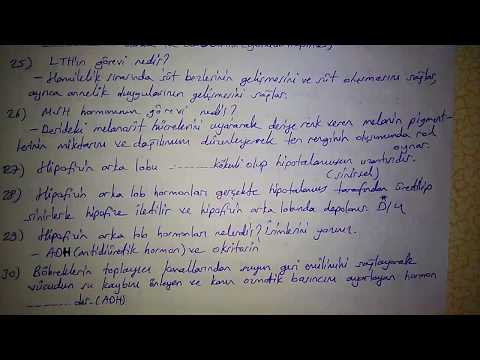 25) LTH'ın görevi nedir?
- Hamilelik sırasında süt bezlerinin gelişmesini ve süt oluşmasını sağlar,
ayrıca annelik duygularının gelişmesini sağlar.
26) MSH hormonunun görevi nedir?
- Derideki melanosit hücrelerini uyararak deriye renk veren melanin pigment-
lerinin miktarını ve dağılımını düzenleyerek ten renginin oluşumunda rol
oynar.
27) Hipofizin arka lobu .......... kökenli olup hipotalamusun uzantısıdır.
(sinirsel)
28) Hipofizin arka lob hormonları gerçekte hipotalamus tarafından üretilip
sinirlerle hipofize iletilir ve hipofizin arka lobunda depolanır. D/Y
29) Hipofizin arka lob hormonları nelerdir? İsimlerini yazınız.
- ADH (antidiüretik hormon) ve oksitosin
30) Böbreklerin toplayıcı kanallarından suyun geri emilimini sağlayarak
vücudun su kaybını önleyen ve kanın ozmotik basıncını ayarlayan hormon
.......... dır. (ADH)